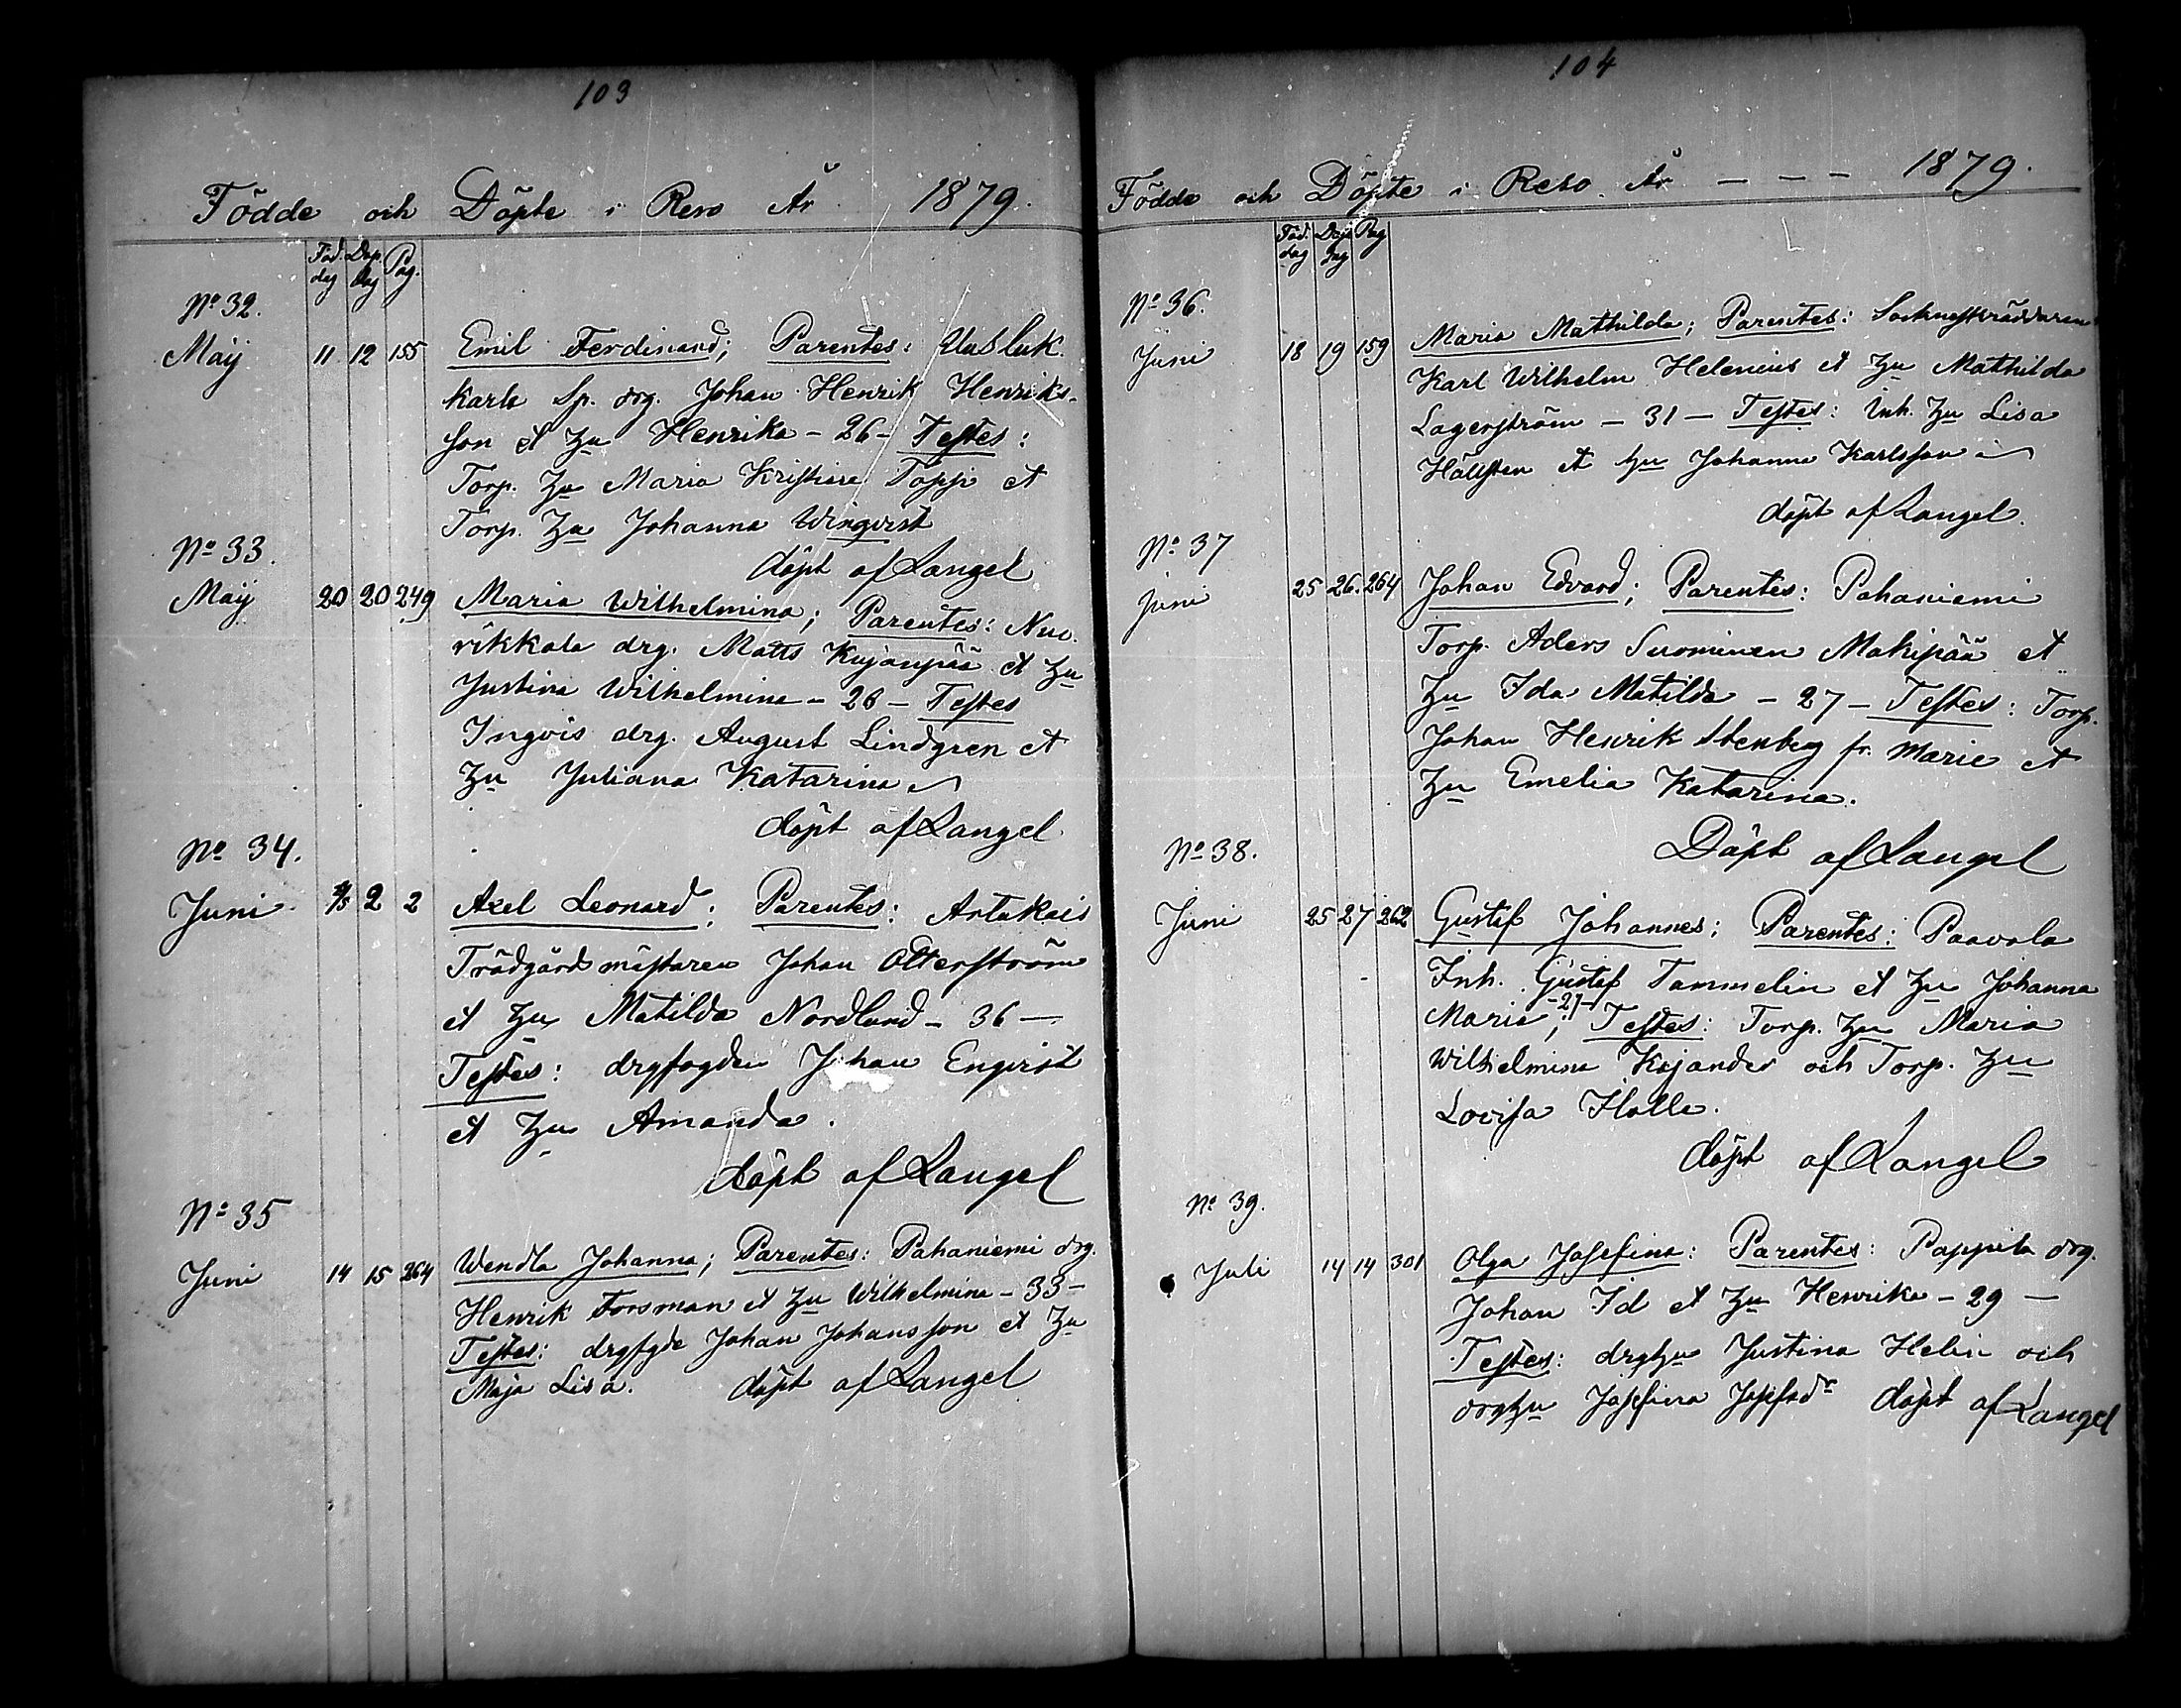 103
Födde och Döpte i Reso År 1879.
Föd. dag Döp. dag Pag.
No 32.
Maij 11 12 155 Emil Ferdinand; Parentes:
karls Sp. drg. Johan Henrik Henriks-
son et hu Henrika - 26 - Testes:
Torp. hu Maria Kristina Topp et
Torp. hu Johanna Winqvist
döpt af Langel
No 33.
Maij 20 20 249 Maria Wilhelmina; Parentes: Nuo-
rikkala drg. Matts Kujanpää et hu
Justina Wilhelmina - 26 - Testes
Ingois drg. August Lindgren et
hu Juliana Katarina
döpt af Langel
No 34.
Juni 2 2 Axel Leonard; Parentes: Artukais
Trädgårdmästaren Johan Otterström
et hu Matilda Nordlund - 36 -
Testes: drgfogden Johan Enqvist
et hu Amanda.
döpt af Langel
No 35
Juni 14 15 264 Wendla Johanna; Parentes: Pahaniemi drg.
Henrik Forsman et hu Wilhelmina - 33 -
Testes: drgfgde Johan Johansson et hu
Maja Lisa. döpt af Langel
104
Födde och Döpte i Reso År - - - 1879.
Föd. dag Döp. dag Pag
No 36.
Juni 18 19 159 Maria Mathilda; Parentes: Sockneskräddaren
Karl Wilhelm Helenius et hu Mathilda
Lagerström - 31 - Testes: Inh. hu Lisa
Hällsten et hu Johanna Karlsson
döpt af Langel.
No 37
Juni 25 26. 264 Johan Edvard; Parentes: Pahaniemi
Torp. Aders Suominen Mahipää et
hu Ida Matilda - 27 - Testes: Torp.
Johan Henrik Stenberg fr. Marie et
hu Emelia Katarina.
Döpt af Langel
No 38.
Juni 25 27 262 Gustaf Johannes; Parentes: Paavola
Inh. Gustaf Tammelin et hu Johanna
Maria; -27- Testes: Torp. hu Maria
Wilhelmina Kujander och Torp. hu
Lovisa Holle.
döpt af Langel
No 39.
Juli 14 14 301 Olga Josefina: Parentes: Pappila drg.
Johan Id et hu Henrika - 29 -
Testes: drghu Justina Helin och
drghu Josefina Josefsdr döpt af Langel